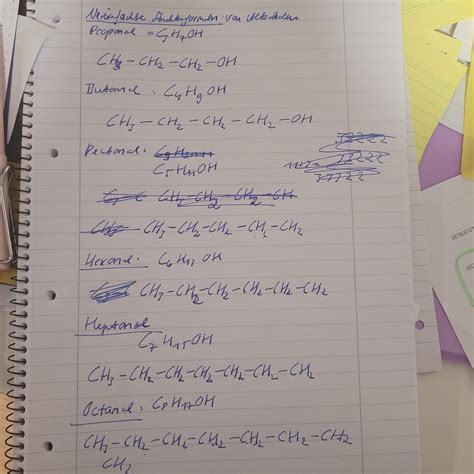 Vereinfachte Strukturformeln von Alkoholen
Propanol = C3H7OH
CH3 – CH2 – CH2 – OH
Butanol : C4H9OH
CH3 – CH2 – CH2 – CH2 – OH
Pentanol:
C5H11OH
CH3 – CH2 – CH2 – CH2 – CH2
Hexanol: C6H13 OH
CH3 – CH2 – CH2 – CH2 – CH2 – CH2
Heptanol
C7H15OH
CH3 – CH2 – CH2 – CH2 – CH2 – CH2 – CH2
Octanol: C8H17OH
CH3 – CH2 – CH2 – CH2 – CH2 – CH2 – CH2
CH2